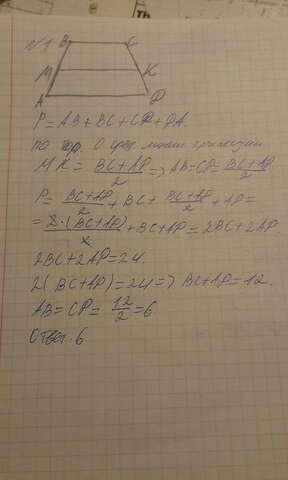 №1 B C
M K
A D
P = AB + BC + CD + DA.
по тер. О сред. линии трапеции
MK = BC+AD/2 => AB=CD= BC+AD/2
P= BC+AD/2 + BC + BC+AD/2 + AD =
= 2·(BC+AD)/2 + BC+AD = 2BC+2AD
2BC+2AD=24.
2(BC+AD)=24 => BC+AD=12.
AB=CD= 12/2 =6
Ответ. 6